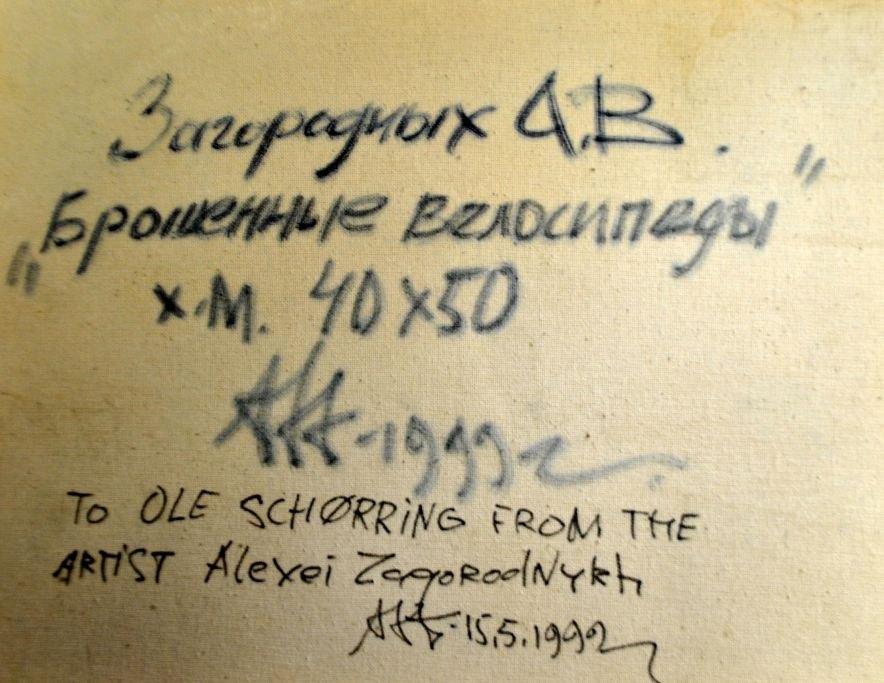 Загородных А.В.
„Брошенные велосипеды"
х.м. 40х50
1992
TO OLE SCHØRRING FROM THE
ARTIST Alexei Zagorodnykh
15.5.1992